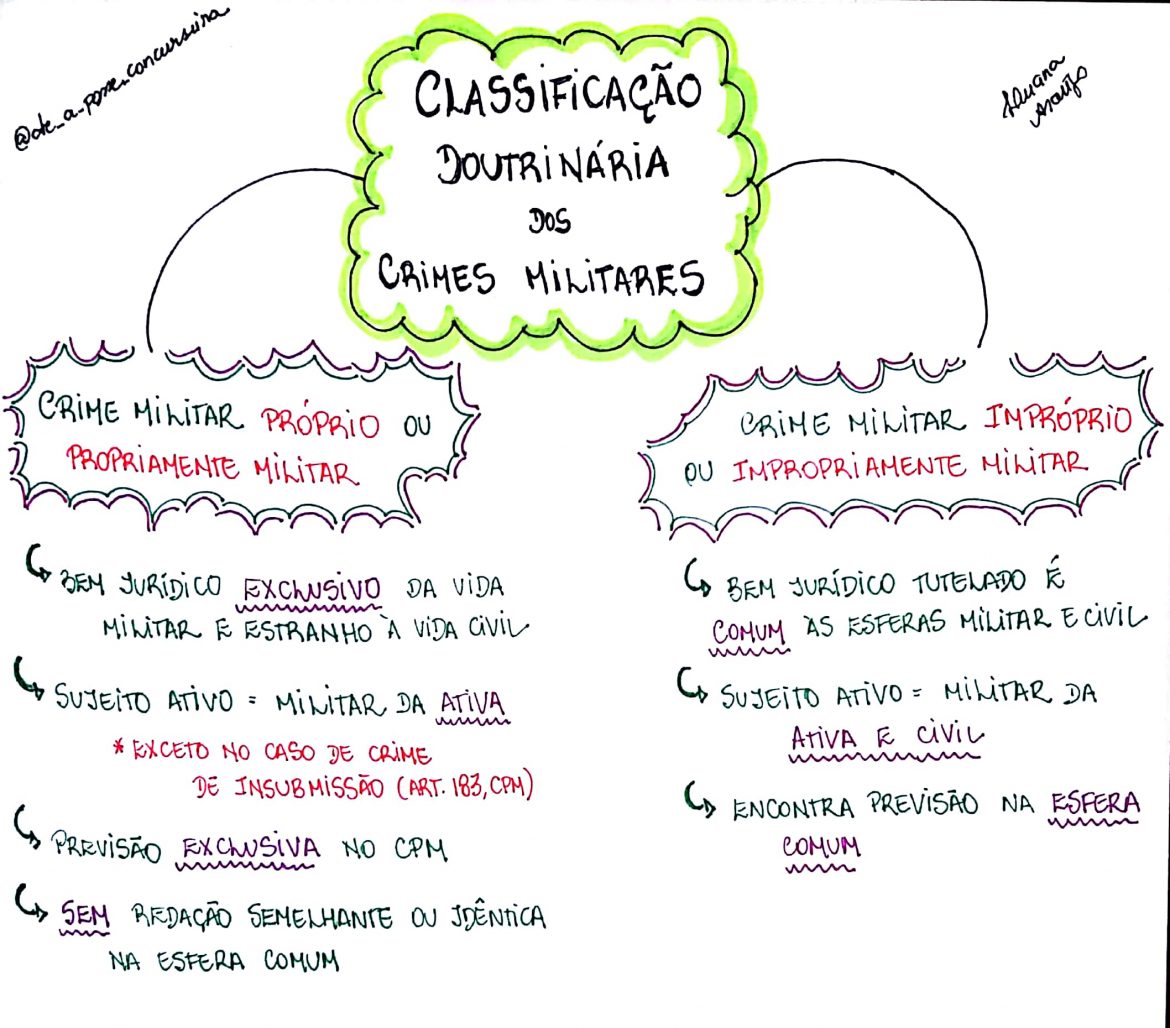 @ate_a_posse_concurseira
Araújo
CLASSIFICAÇÃO
DOUTRINÁRIA
DOS
CRIMES MILITARES
CRIME MILITAR PRÓPRIO OU
PROPRIAMENTE MILITAR
BEM JURÍDICO EXCLUSIVO DA VIDA
MILITAR E ESTRANHO À VIDA CIVIL
SUJEITO ATIVO = MILITAR DA ATIVA
* EXCETO NO CASO DE CRIME
DE INSUBMISSÃO (ART. 183, CPM)
PREVISÃO EXCLUSIVA NO CPM
SEM REDAÇÃO SEMELHANTE OU IDÊNTICA
NA ESFERA COMUM
CRIME MILITAR IMPRÓPRIO
OU IMPROPRIAMENTE MILITAR
BEM JURÍDICO TUTELADO É
COMUM ÀS ESFERAS MILITAR E CIVIL
SUJEITO ATIVO = MILITAR DA
ATIVA E CIVIL
ENCONTRA PREVISÃO NA ESFERA
COMUM